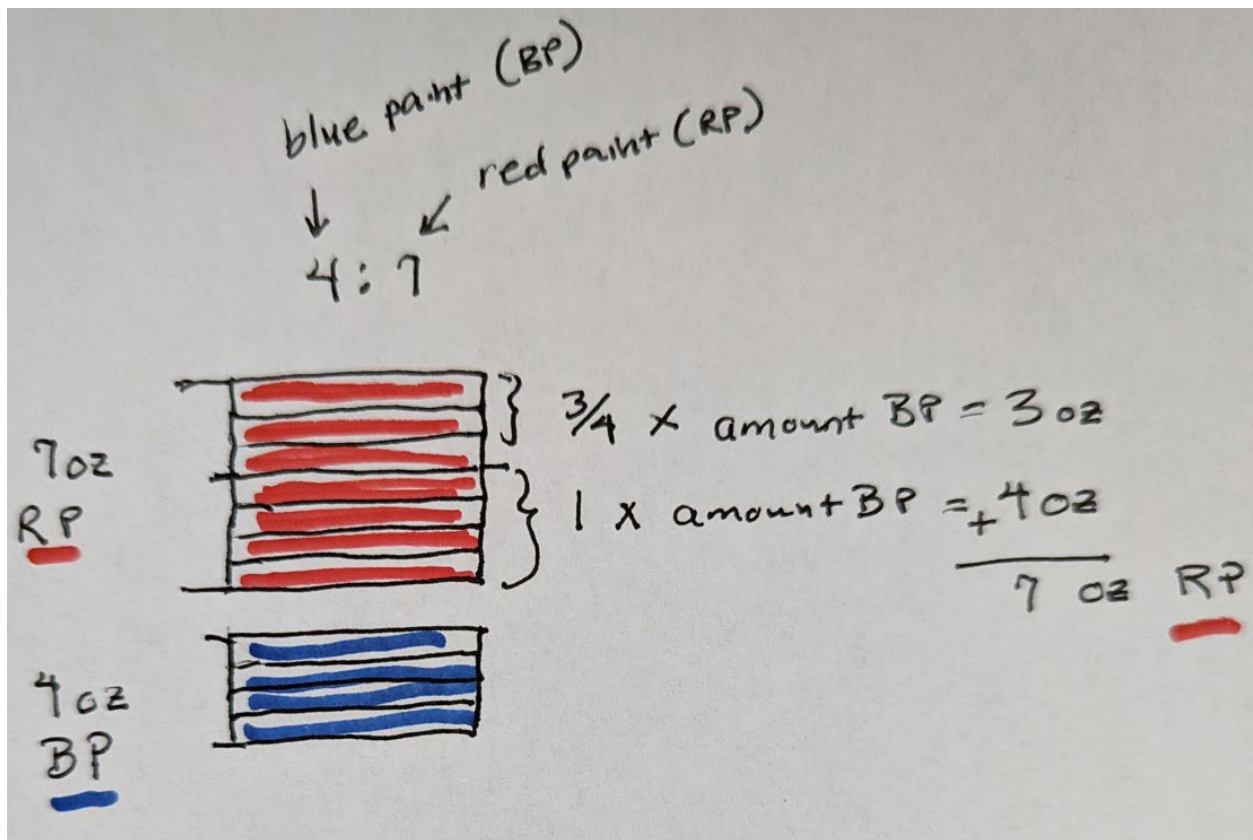 blue paint (BP)
red paint (RP)
4 : 7
7 oz
RP
3/4 x amount BP = 3 oz
1 x amount BP = + 4 oz
7 oz RP
4 oz
BP